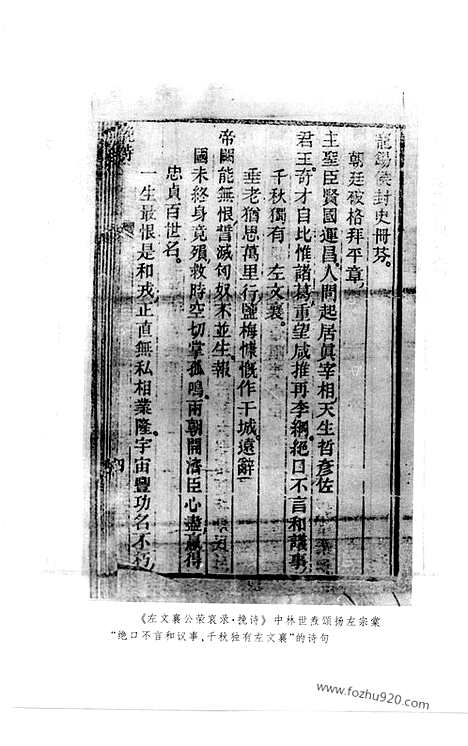 寵錫侯封史冊芬。
朝廷破格拜平章，
主聖臣賢國運昌。人間起居眞宰相，天生哲彥佐
君王。奇才自比惟諸葛，重望咸推再李綱。絕口不言和議事，
千秋獨有 左文襄。
垂老猶思萬里行，鹽梅慷慨作干城。遠辭
帝闕能無恨，誓滅匈奴不並生。報
國未終身竟殞，救時空切掌孤鳴。兩朝開濟臣心盡，贏得
忠貞百世名。
一生最恨是和戎，正直無私相業隆。宇宙豐功名不朽，
挽詩
四
《左文襄公荣哀录·挽诗》中林世焘颂扬左宗棠
“绝口不言和议事，千秋独有左文襄”的诗句
www.fozhu920.com